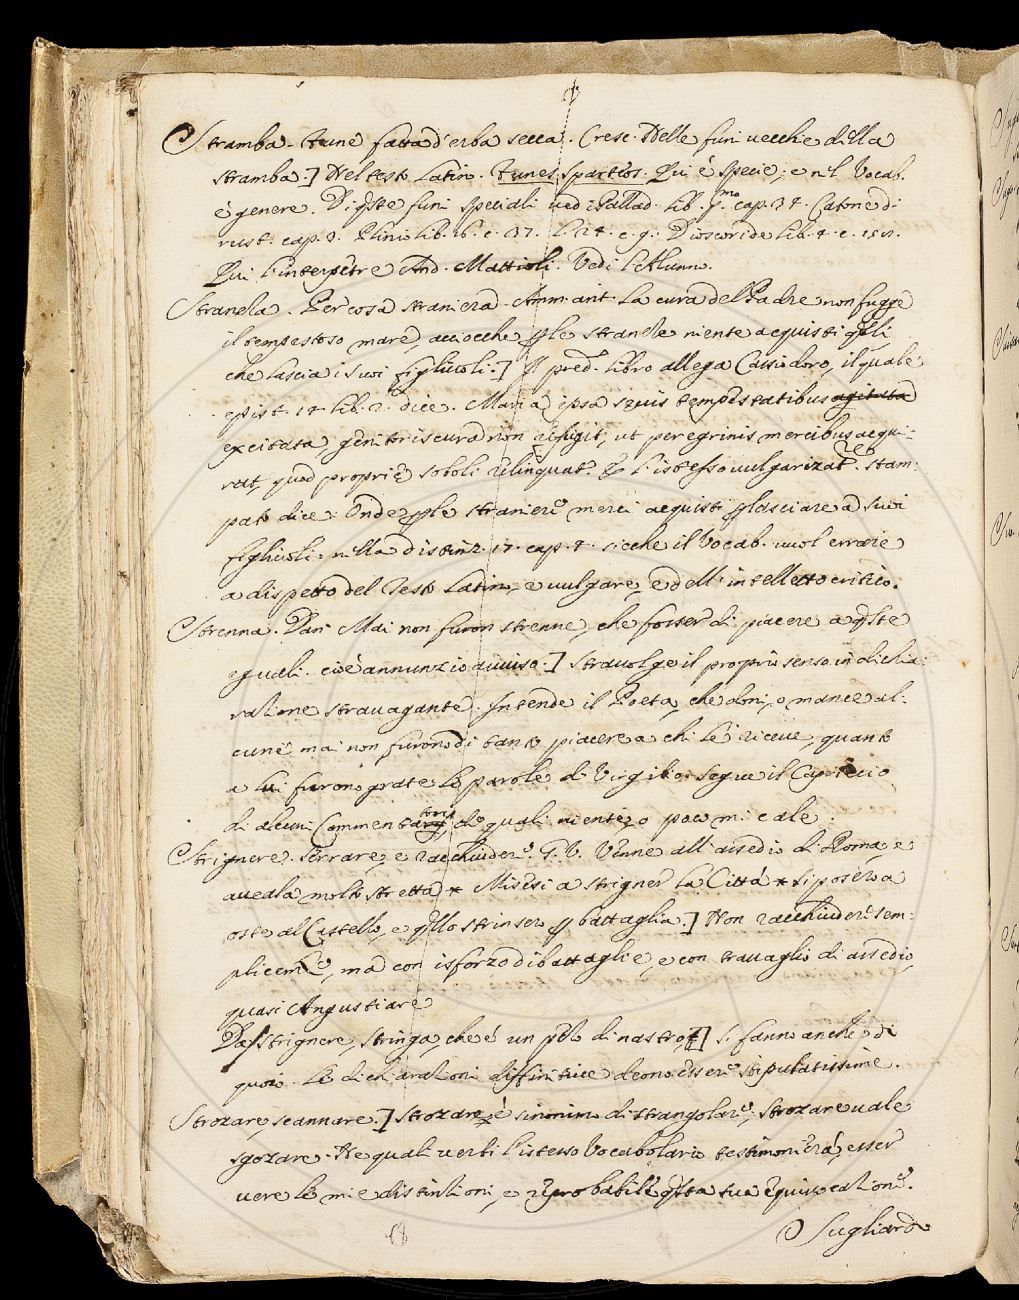 Stramba. Fune fatta d'erba secca. Cresc. Delle funi vecchie della
stramba.] Nel testo Latino. Funes sparteos. Qui è specie; e nel Vocab.
è genere. Di q̃ste funi speciali vedi Pallad. lib. p.mo cap. 34. Catone d.
rust. cap. 3. Plinio lib. 16. c. 37. l. 24. c. 9. Dioscoride lib. 4. c.
Qui l'interpetre And. Mattioli. Vedi l'Alunno.
Strania. Per cosa straniera. Amm. ant. La cura del Padre non fugge
il tempestoso mare, acciocche p̃ le strane niente acquisti q̃lli
che lascia i suoi figliuoli.] Il pred. libro allega Cassiodoro, il quale
epist. 14. lib. 2. dice. Maria ipsa sævis tempestatibus agitata
excitata, genitoris cura non refugit, ut peregrinis mercibus acqui-
rat, quod propriæ soboli relinquat. E l'istesso vulgarizat.re stam-
pato dice: Onde p̃ le straniere merci acquisti p̃ lasciare a suoi
figliuoli. nella distinz. 17. cap. 4. sicche il Vocab. vuol errare
a dispetto del Testo Latino, e vulgare, e dell'intelletto critico.
Strenna. Dan. Mai non furon strenne, che fosser di piacere a q̃ste
eguali. cioè annunzio avviso.] stravolge il proprio senso in dichia-
ratione stravagante. Intende il Poeta, che doni, o mance al-
cune mai non furono di tanto piacere a chi le riceve, quanto
a lui furono grate le parole di Virgilio. segue il Capriccio
di alcuni Commentatori de quali niente, o poco mi cale.
Strignere. serrare, e racchiudere. G. V. Venne all'assedio di Roma, e
aveala molto stretta * Misesi a strigner la Città * si poser a
oste al Castello, e q̃llo strinsero p̃ battaglia.] Non racchiudere sem-
plicem.te, ma con isforzo di battaglie, e con travaglio di assedio,
quasi Angustiare
Da strignere, stringa, che è un pezzo di nastro,] si fanno anche di
quoio. Le dichiarationi diffinitive deono esser stiputatissime.
Strozare, scannare.] Strozare è sinonimo di strangolare; strozare vale
sgozare. De quali verbi l'istesso Vocabolario testimonierà, esser
vere le mie distintioni, e riprobabile q̃sta sua equivocatione.
Sugliardo